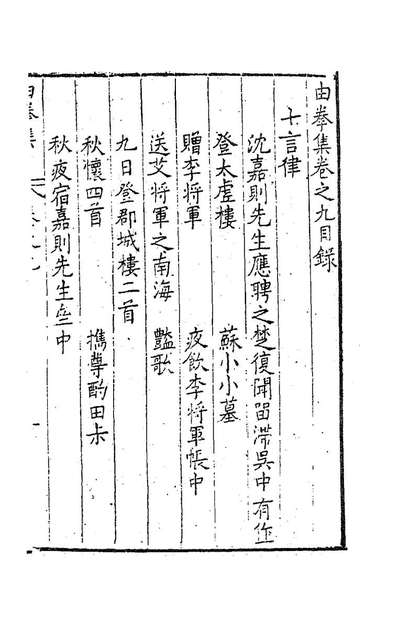 由拳集卷之九目錄
七言律
沈嘉則先生應聘之楚復聞留滯吳中有作
登太虛樓 蘇小小墓
贈李將軍 夜飲李將軍帳中
送艾將軍之南海 豔歌
九日登郡城樓二首
秋懷四首 攜尊酌田未
秋夜宿嘉則先生壘中
由拳集